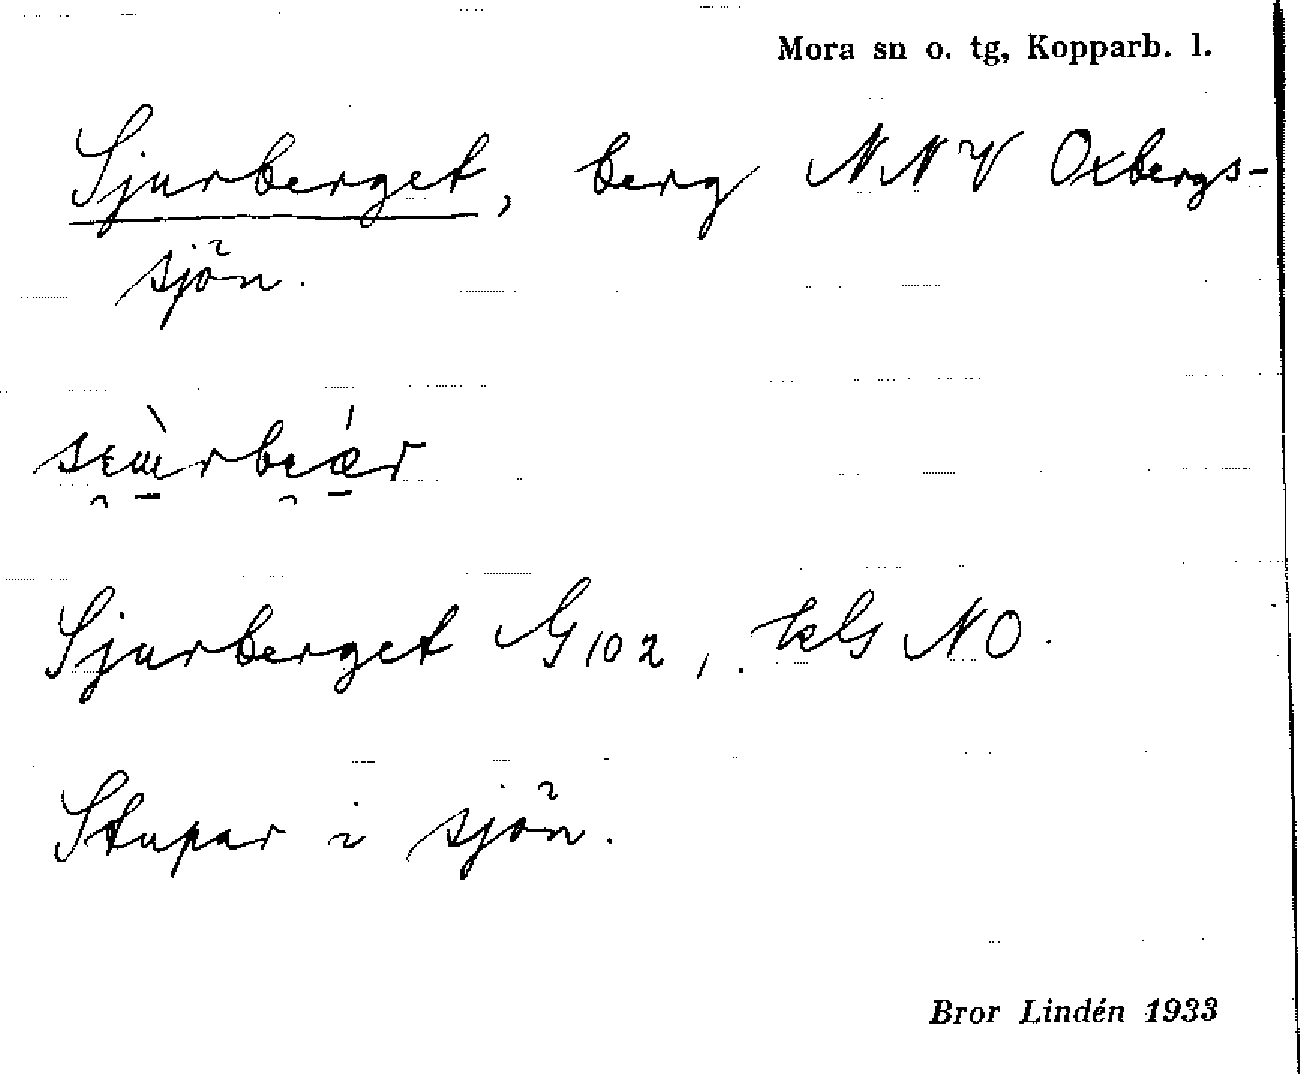 Mora sn o. tg, Kopparb. l.
Sjurberget, berg NNV Oxbergs-
sjön.
Sjurberget G 102, kG NO.
Stupar i sjön.
Bror Lindén 1933